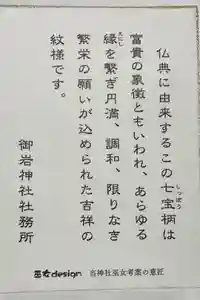 仏典に由来するこの七宝柄は
富貴の象徴ともいわれ、あらゆる
縁を繋ぎ円満、調和、限りなき
繁栄の願いが込められた吉祥の
紋様です。
御岩神社社務所
巫女design 当神社巫女考案の意匠